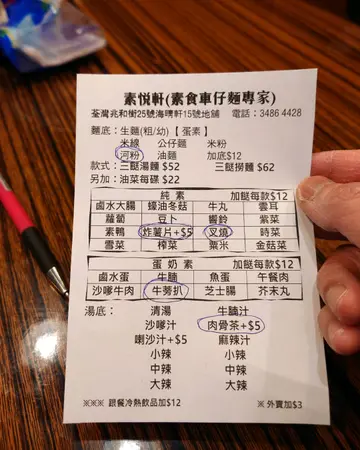 素悦軒(素食車仔麵專家)
荃灣兆和街25號海晴軒15號地舖 電話：3486 4428
麵底：生麵(粗/幼)【蛋素】
米線 公仔麵 米粉
河粉 油麵 加底$12
款式：三餸湯麵 $52 三餸撈麵 $62
另加：油菜每碟 $22
純素 加餸每款$12
鹵水大腸 蠔油冬菇 牛丸 雲耳
蘿蔔 豆卜 響鈴 紫菜
素鴨 炸薯片+$5 叉燒 時菜
雪菜 榨菜 粟米 金菇菜
蛋奶素 加餸每款$12
鹵水蛋 牛腩 魚蛋 午餐肉
沙嗲牛肉 牛蒡扒 芝士腸 芥末丸
湯底：清湯 牛腩汁
沙嗲汁 肉骨茶+$5
喇沙汁+$5 麻辣汁
小辣 小辣
中辣 中辣
大辣 大辣
※※※ 跟餐冷熱飲品加$12 ※ 外賣加$3